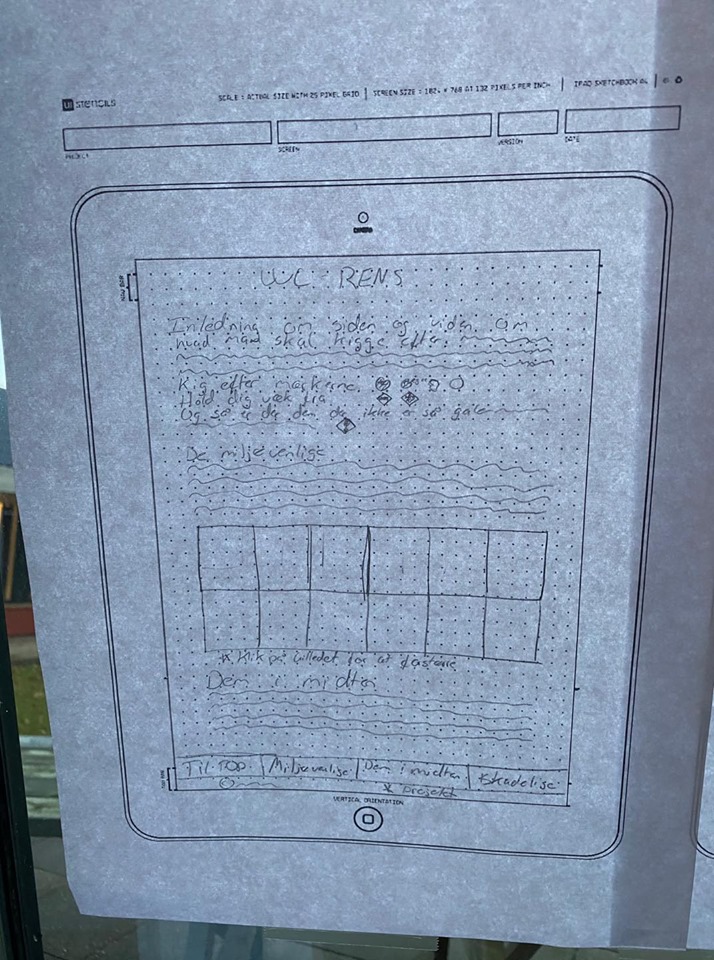 UI STENCILS
SCALE : ACTUAL SIZE WITH 25 PIXEL GRID | SCREEN SIZE : 1024 x 768 AT 132 PIXELS PER INCH | IPAD SKETCHBOOK
PROJECT SCREEN VERSION DATE
CAMERA
NAV BAR
WC RENS
Inledning om siden og viden om
hvad man skal kigge efter.
Kig efter mærkerne
Hold dig væk fra
Og så er da den da ikke er så gale
De miljøvenlige
* Klik på billedet for at
Dem i midten
TAB BAR
Til TOP | Miljøvenlige | Dem i midten | Skadelige
* Projekt
VERTICAL ORIENTATION